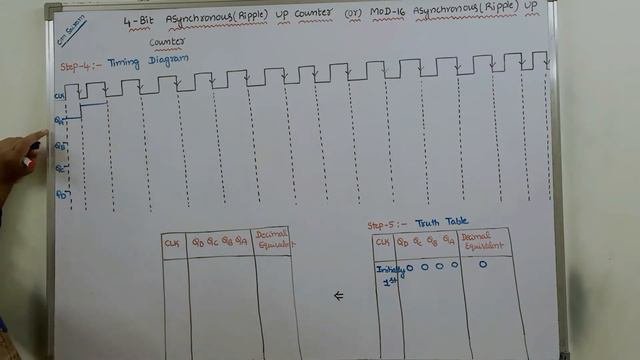 4-Bit Asynchronous(Ripple) UP Counter (or) MOD-16 Asynchronous(Ripple) UP
Counter
Step-4:- Timing Diagram
CLK
QA
QB
QC
QD
Step-5:- Truth Table
CLK QD QC QB QA Decimal Equivalent
CLK QD QC QB QA Decimal Equivalent
Initially 0 0 0 0 0
1st
⇐